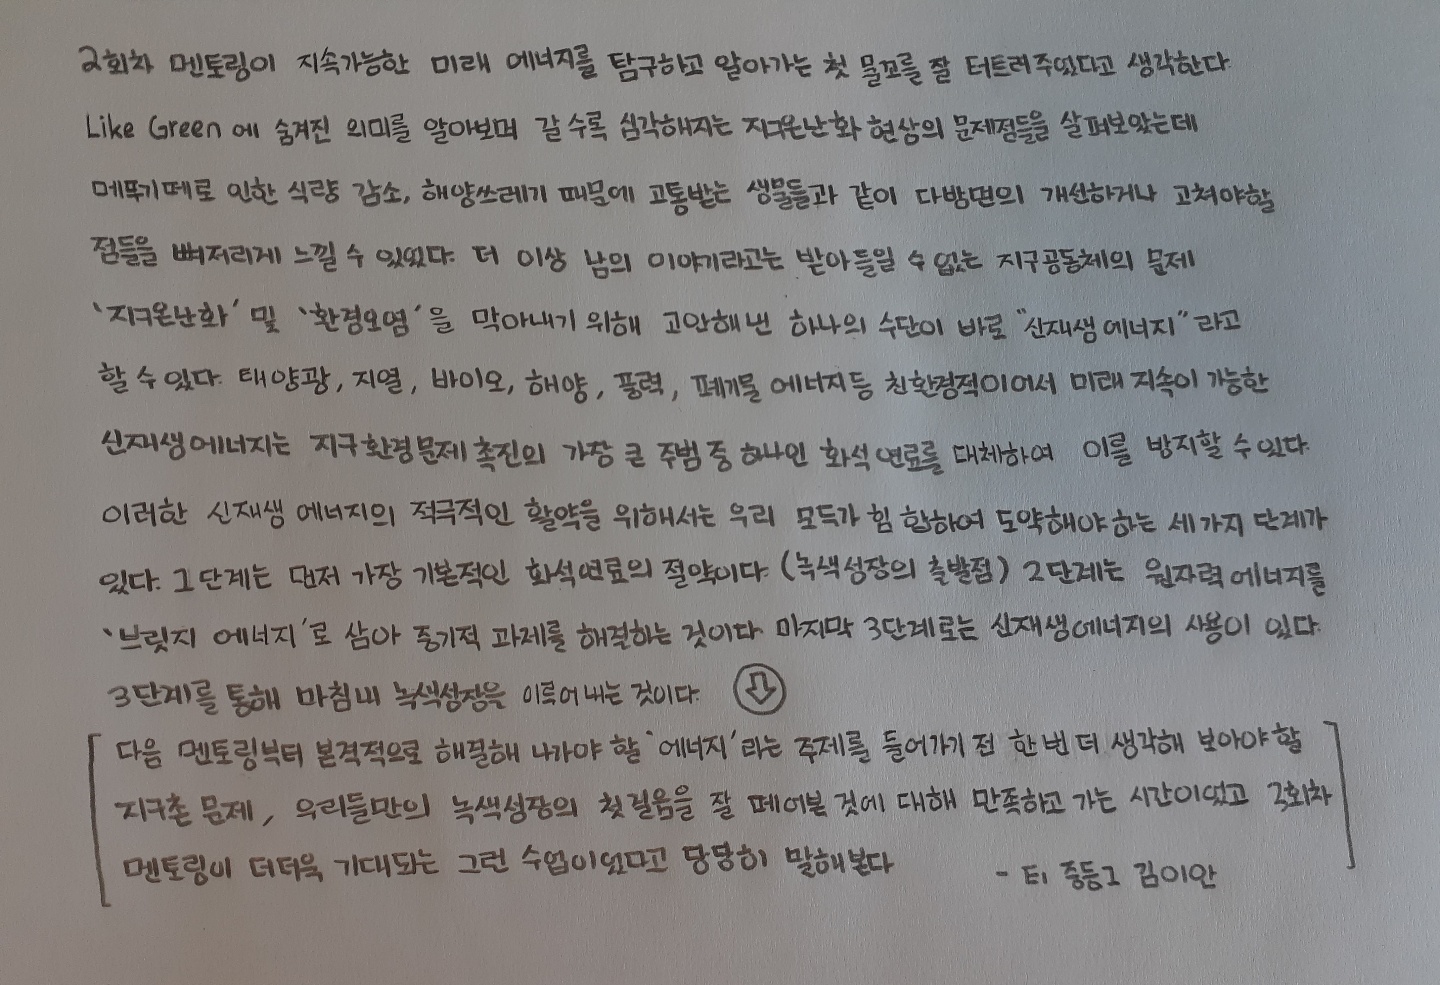 2회차 멘토링이 지속가능한 미래 에너지를 탐구하고 알아가는 첫 물꼬를 잘 터트려주었다고 생각한다.
Like Green에 숨겨진 의미를 알아보며 갈수록 심각해지는 지구온난화 현상의 문제점들을 살펴보았는데
메뚜기떼로 인한 식량 감소, 해양쓰레기 때문에 고통받는 생물들과 같이 다방면의 개선하거나 고쳐야할
점들을 뼈저리게 느낄 수 있었다. 더 이상 남의 이야기라고는 받아들일 수 없는 지구공동체의 문제
'지구온난화' 및 '환경오염'을 막아내기 위해 고안해낸 하나의 수단이 바로 "신재생에너지"라고
할 수 있다. 태양광, 지열, 바이오, 해양, 풍력, 폐기물 에너지등 친환경적이어서 미래 지속이 가능한
신재생에너지는 지구환경문제 촉진의 가장 큰 주범 중 하나인 화석연료를 대체하여 이를 방지할 수 있다.
이러한 신재생에너지의 적극적인 활약을 위해서는 우리 모두가 힘 합하여 도약해야 하는 세가지 단계가
있다. 1단계는 먼저 가장 기본적인 화석연료의 절약이다. (녹색성장의 출발점) 2단계는 원자력에너지를
'브릿지 에너지'로 삼아 중기적 과제를 해결하는 것이다. 마지막 3단계로는 신재생에너지의 사용이 있다.
3단계를 통해 마침내 녹색성장을 이루어 내는 것이다.
다음 멘토링부터 본격적으로 해결해 나가야 할 '에너지'라는 주제를 들어가기 전 한번 더 생각해 보아야 할
지구촌 문제, 우리들만의 녹색성장의 첫걸음을 잘 떼어본 것에 대해 만족하고 가는 시간이었고 3회차
멘토링이 더더욱 기대되는 그런 수업이었다고 당당히 말해본다
- E1 중등1 김이안